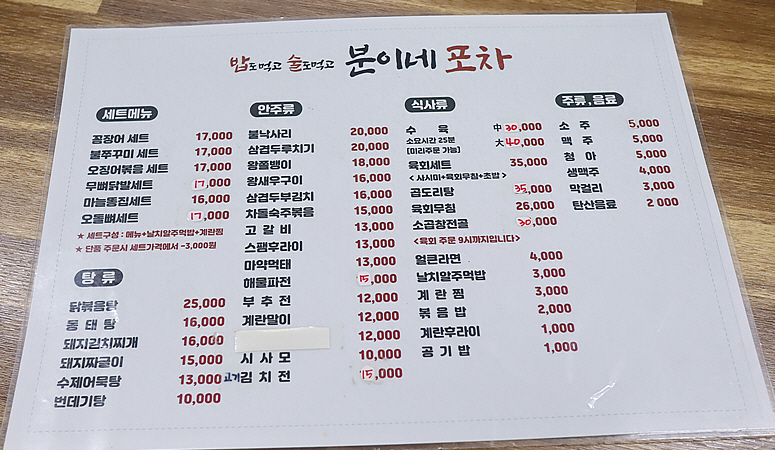 밥도먹고 술도먹고 분이네 포차
세트메뉴
꼼장어 세트 17,000
불쭈꾸미 세트 17,000
오징어볶음 세트 17,000
무뼈닭발세트 17,000
마늘똥집세트 16,000
오돌뼈세트 17,000
★ 세트구성 : 메뉴+날치알주먹밥+계란찜
★ 단품 주문시 세트가격에서 -3,000원
탕 류
닭볶음탕 25,000
동 태 탕 16,000
돼지김치찌개 16,000
돼지짜글이 15,000
수제어묵탕 13,000
번데기탕 10,000
안주류
불낙사리 20,000
삼겹두루치기 20,000
왕쫄뱅이 18,000
왕새우구이 16,000
삼겹두부김치 16,000
차돌숙주볶음 15,000
고 갈 비 13,000
스팸후라이 13,000
마약먹태 13,000
해물파전 15,000
부 추 전 12,000
계란말이 12,000
12,000
시 사 모 10,000
고기김 치 전 15,000
식사류
수 육 中 30,000
소요시간 25분 大 40,000
[미리주문 가능]
육회세트 35,000
< 사시미+육회무침+초밥 >
곱도리탕 35,000
육회무침 26,000
소곱창전골 30,000
<육회 주문 9시까지입니다>
얼큰라면 4,000
날치알주먹밥 3,000
계 란 찜 3,000
볶 음 밥 2,000
계란후라이 1,000
공 기 밥 1,000
주류, 음료
소 주 5,000
맥 주 5,000
청 아 5,000
생맥주 4,000
막걸리 3,000
탄산음료 2 000